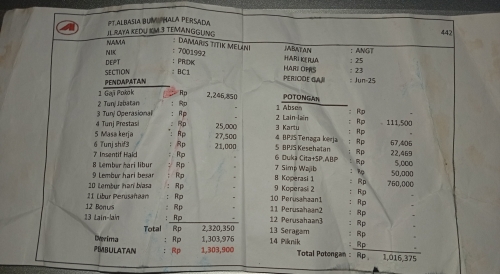 PT.ALBASIA BUMIPHALA PERSADA
JL.RAYA KEDU KM.3 TEMANGGUNG
442
NAMA : DAMARIS TITIK MELANI
NIK : 7001992
DEPT : PRDK
SECTION : BC1
JABATAN : ANGT
HARI KERJA : 25
HARI OPRS : 23
PERIODE GAJI : Jun-25
PENDAPATAN
1 Gaji Pokok : Rp 2,246,850
2 Tunj Jabatan : Rp -
3 Tunj Operasional : Rp -
4 Tunj Prestasi : Rp 25,000
5 Masa kerja : Rp 27,500
6 Tunj shif3 : Rp 21,000
7 Insentif Haid : Rp -
8 Lembur hari libur : Rp -
9 Lembur hari besar : Rp -
10 Lembur hari biasa : Rp -
11 Libur Perusahaan : Rp -
12 Bonus : Rp -
13 Lain-lain : Rp -
Total Rp 2,320,350
Diterima Rp 1,303,976
PIMBULATAN Rp 1,303,900
POTONGAN
1 Absen : Rp -
2 Lain-lain : Rp 111,500
3 Kartu : Rp -
4 BPJS Tenaga kerja : Rp 67,406
5 BPJS Kesehatan : Rp 22,469
6 Duka Cita+SP.ABP : Rp 5,000
7 Simp Wajib : Rp 50,000
8 Koperasi 1 : Rp 760,000
9 Koperasi 2 : Rp -
10 Perusahaan1 : Rp -
11 Perusahaan2 : Rp -
12 Perusahaan3 : Rp -
13 Seragam : Rp -
14 Piknik : Rp -
Total Potongan : Rp 1,016,375